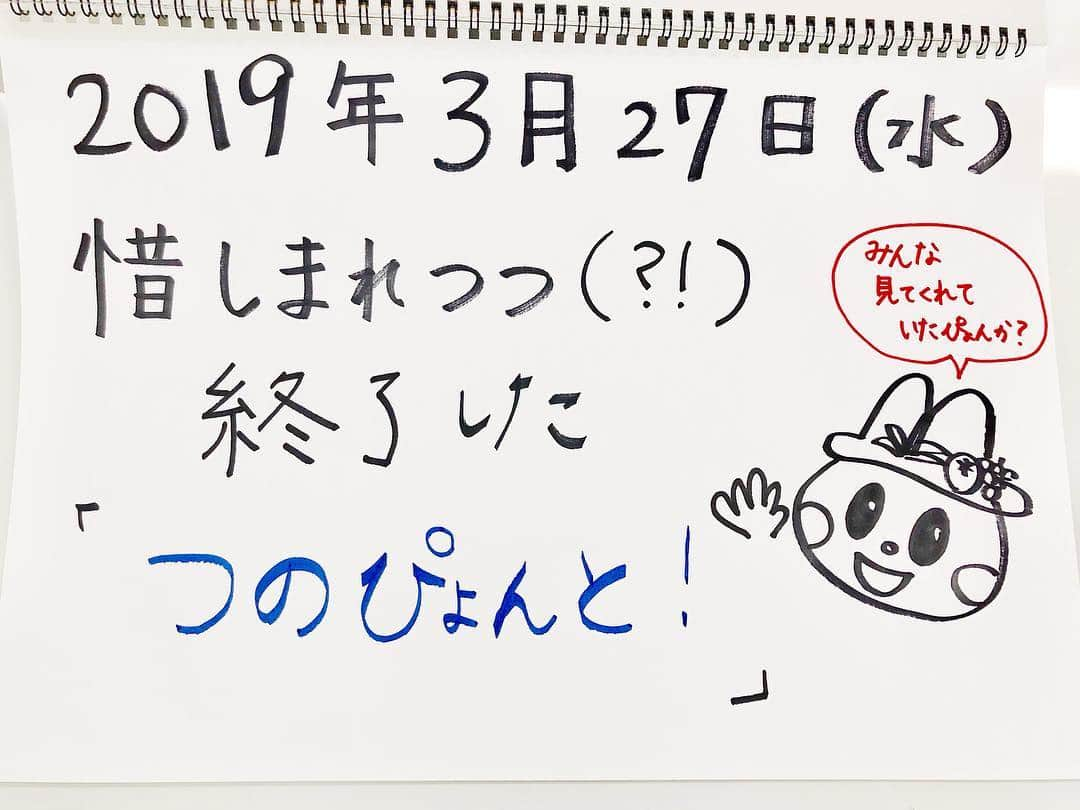 2019年3月27日(水)
惜しまれつつ(?!)
終了した
「つのぴょんと!」
みんな
見てくれて
いたぴょんか?